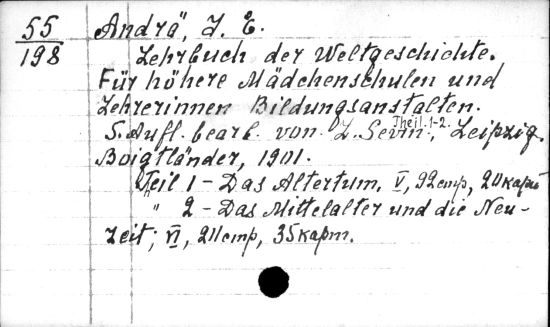 55
198
Andrä, J. C.
Lehrbuch der Weltgeschichte.
Für höhere Mädchenschulen und
Lehrerinnen Bildungsanstalten.
5. Aufl. bearb. von L. Sevin, Theil. 1-2. Leipzig.
Voigtländer, 1901.
Theil 1 - Das Altertum. V, 92 стр, 20 карт
" 2 - Das Mittelalter und die Neu-
zeit; VI, 211 стр, 35 карт.